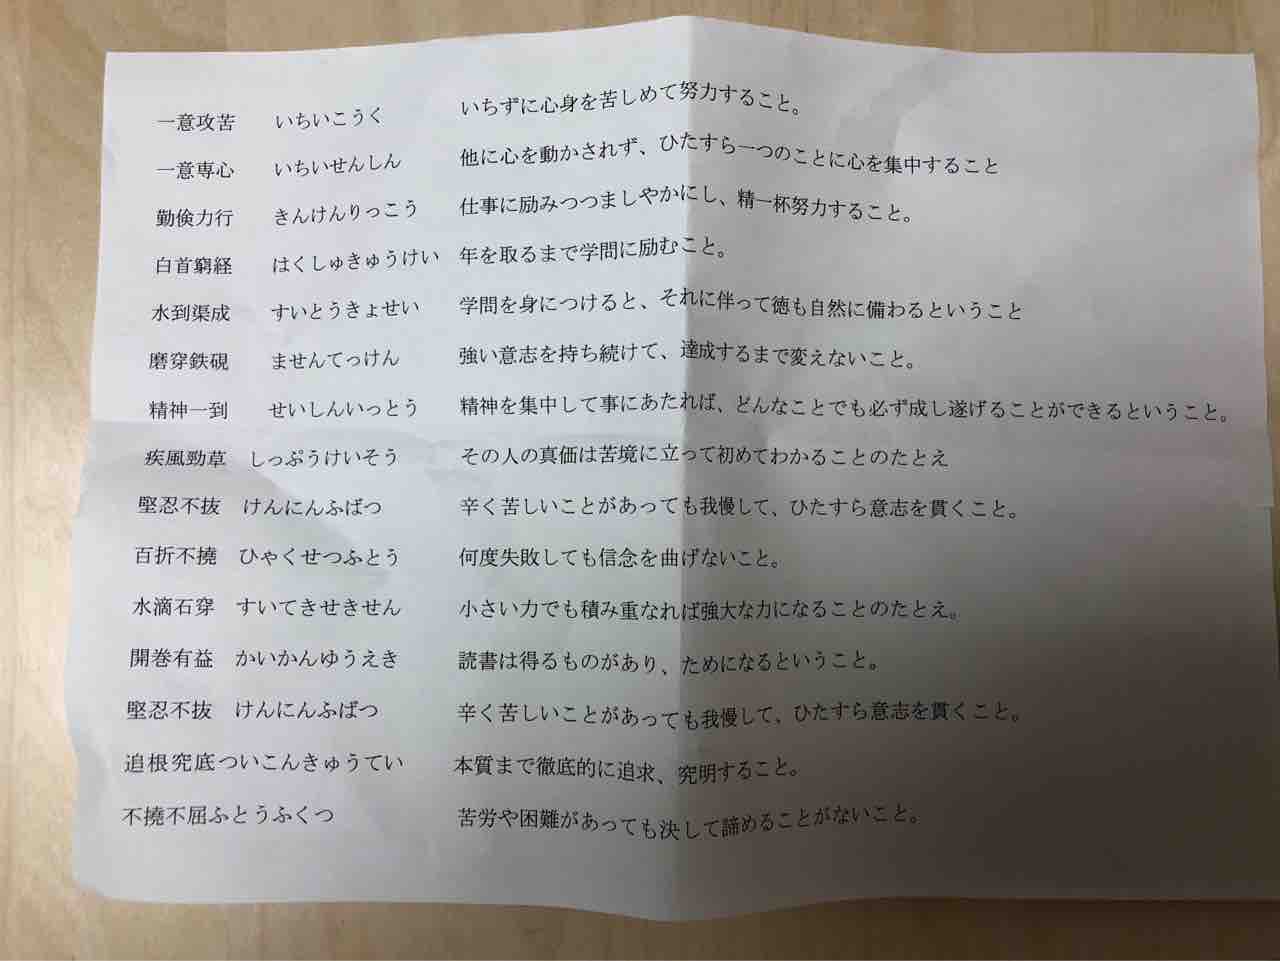 一意攻苦　いちいこうく　いちずに心身を苦しめて努力すること。
一意専心　いちいせんしん　他に心を動かされず、ひたすら一つのことに心を集中すること
勤倹力行　きんけんりっこう　仕事に励みつつましやかにし、精一杯努力すること。
白首窮経　はくしゅきゅうけい　年を取るまで学問に励むこと。
水到渠成　すいとうきょせい　学問を身につけると、それに伴って徳も自然に備わるということ
磨穿鉄硯　ませんてっけん　強い意志を持ち続けて、達成するまで変えないこと。
精神一到　せいしんいっとう　精神を集中して事にあたれば、どんなことでも必ず成し遂げることができるということ。
疾風勁草　しっぷうけいそう　その人の真価は苦境に立って初めてわかることのたとえ
堅忍不抜　けんにんふばつ　辛く苦しいことがあっても我慢して、ひたすら意志を貫くこと。
百折不撓　ひゃくせつふとう　何度失敗しても信念を曲げないこと。
水滴石穿　すいてきせきせん　小さい力でも積み重なれば強大な力になることのたとえ。
開巻有益　かいかんゆうえき　読書は得るものがあり、ためになるということ。
堅忍不抜　けんにんふばつ　辛く苦しいことがあっても我慢して、ひたすら意志を貫くこと。
追根究底ついこんきゅうてい　本質まで徹底的に追求、究明すること。
不撓不屈ふとうふくつ　苦労や困難があっても決して諦めることがないこと。